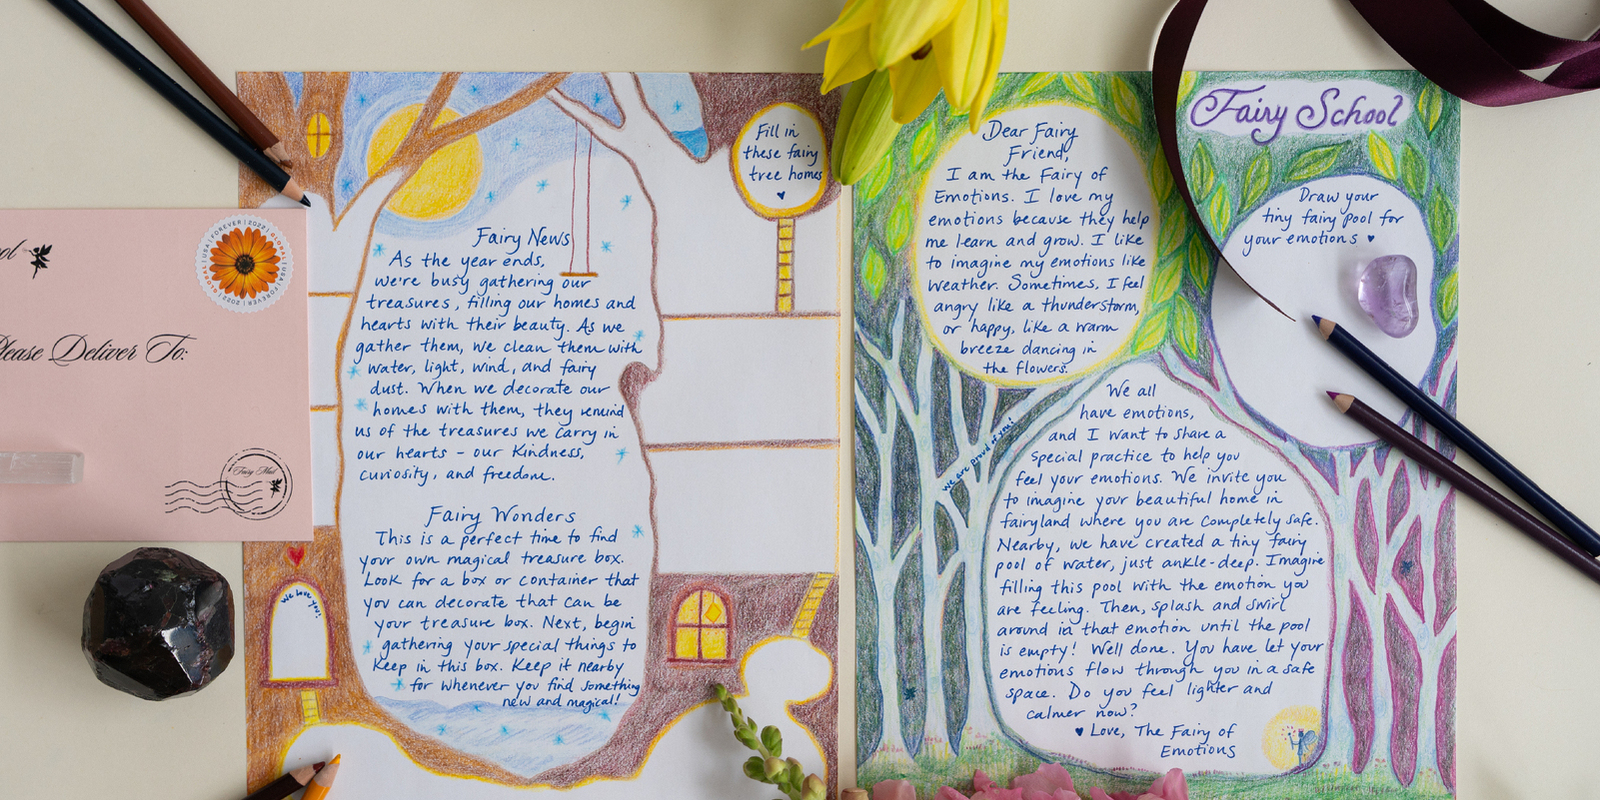 Please Deliver To:
GLOBAL | USA | FOREVER | 2022 | GLOBAL | USA | FOREVER | 2022
Fairy Mail
Fill in
these fairy
tree homes
Fairy News
As the year ends,
we're busy gathering our
treasures, filling our homes and
hearts with their beauty. As we
gather them, we clean them with
water, light, wind, and fairy
dust. When we decorate our
homes with them, they remind
us of the treasures we carry in
our hearts - our kindness,
curiosity, and freedom.
Fairy Wonders
This is a perfect time to find
your own magical treasure box.
Look for a box or container that
you can decorate that can be
your treasure box. Next, begin
gathering your special things to
keep in this box. Keep it nearby
for whenever you find something
new and magical!
We love you!
Fairy School
Dear Fairy
Friend,
I am the Fairy of
Emotions. I love my
emotions because they help
me learn and grow. I like
to imagine my emotions like
weather. Sometimes, I feel
angry like a thunderstorm,
or happy, like a warm
breeze dancing in
the flowers.
Draw your
tiny fairy pool for
your emotions
We are proud of you!
We all
have emotions,
and I want to share a
special practice to help you
feel your emotions. We invite you
to imagine your beautiful home in
fairyland where you are completely safe.
Nearby, we have created a tiny fairy
pool of water, just ankle-deep. Imagine
filling this pool with the emotion you
are feeling. Then, splash and swirl
around in that emotion until the pool
is empty! Well done. You have let your
emotions flow through you in a safe
space. Do you feel lighter and
calmer now?
♥ Love, The Fairy of
Emotions